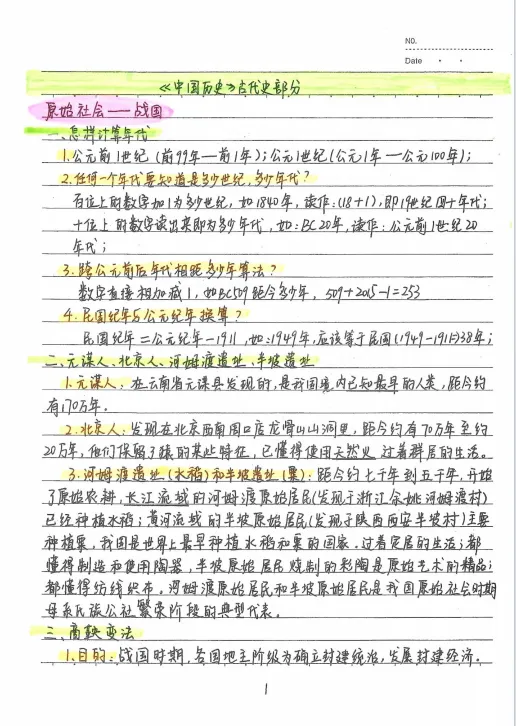 NO.
Date
《中国历史》古代史部分
原始社会——战国
一、怎样计算年代
1.公元前1世纪(前99年—前1年);公元1世纪(公元1年—公元100年);
2.任何一个年代要知道是多少世纪,多少年代?
百位上的数字加1为多少世纪,如1840年,读作:(18+1),即19世纪四十年代;
十位上的数字读出来即为多少年代,如:BC20年,读作:公元前1世纪20
年代;
3.跨公元前后年代相距多少年算法?
数字直接相加减1,如BC509距今多少年,509+2015-1=253
4.民国纪年与公元纪年换算?
民国纪年=公元纪年-1911,如:1949年,应该等于民国(1949-1911)38年;
二、元谋人、北京人、河姆渡遗址、半坡遗址
1.元谋人:在云南省元谋县发现的,是我国境内已知最早的人类,距今约
有170万年。
2.北京人:发现在北京西南周口店龙骨山山洞里,距今约有70万年至约
20万年,他们保留了猿的某些特征,已懂得使用天然火,过着群居的生活。
3.河姆渡遗址(水稻)和半坡遗址(粟):距今约七千年到五千年,开始
了原始农耕,长江流域的河姆渡原始居民(发现于浙江余姚河姆渡村)
已经种植水稻;黄河流域的半坡原始居民(发现于陕西西安半坡村)主要
种植粟,我国是世界上最早种植水稻和粟的国家。过着定居的生活;都
懂得制造和使用陶器,半坡原始居民烧制的彩陶是原始艺术的精品;
都懂得纺线织布。河姆渡原始居民和半坡原始居民是我国原始社会时期
母系氏族公社繁荣阶段的典型代表。
三、商鞅变法
1.目的:战国时期,各国地主阶级为确立封建统治,发展封建经济。
1